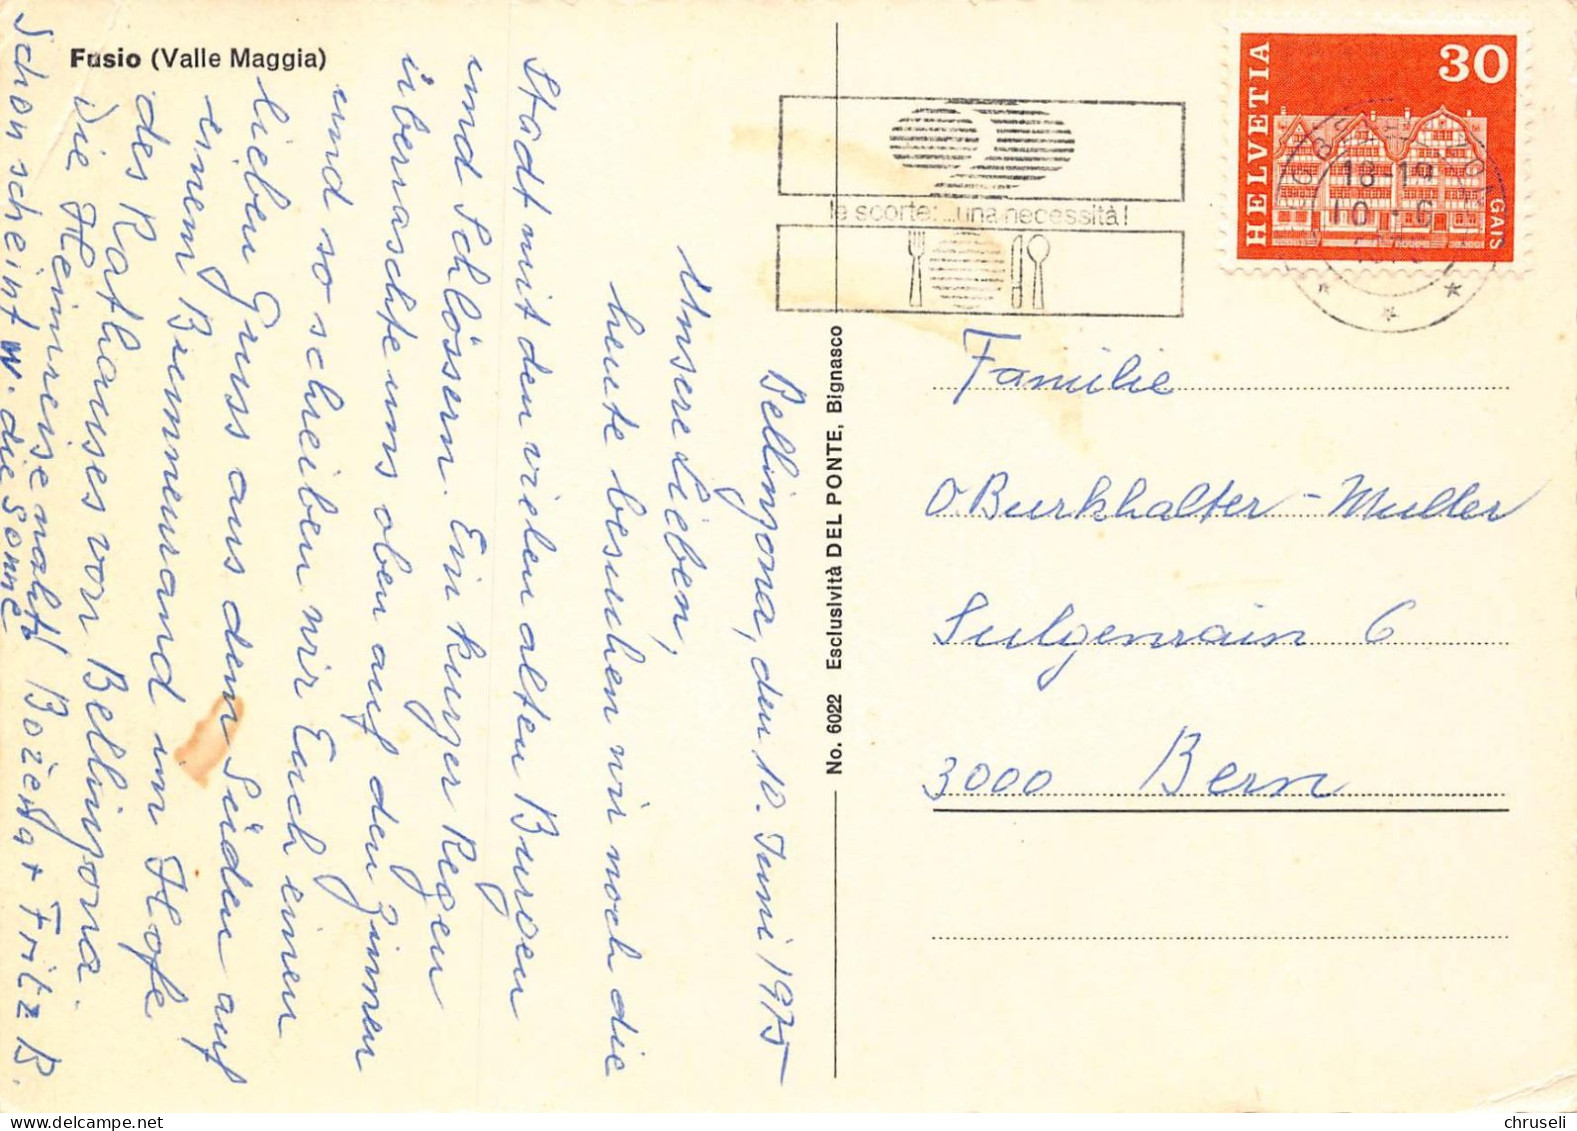 Fusio (Valle Maggia)
Bellinzona, den 10. Juni 1975
Unsere Lieben,
heute besuchen wir noch die
Stadt mit den vielen alten Burgen
und Schlössern. Ein kurzer Regen
überraschte uns oben auf den Zinnen
und so schreiben wir Euch einen
lieben Gruss aus dem Süden auf
einem Brunnenrand im Hofe
des Rathauses von Bellinzona.
Die Heimreise naht!
Schon scheint w. die Sonne
Božena + Fritz B.
No. 6022 Esclusività DEL PONTE, Bignasco
le scorte: ...una necessità!
HELVETIA
30
GAIS
18-19
10-6
Familie
O Burkhalter-Muller
Sulgenrain 6
3000 Bern
chruseli